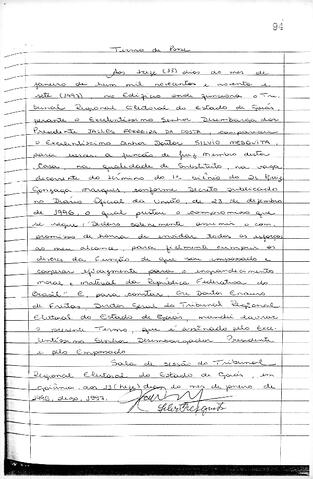 94
Termo de Posse
Aos treze (13) dias do mês de
janeiro de hum mil novecentos e noventa e
sete (1997), no Edifício onde funciona o Tri-
bunal Regional Eleitoral do Estado de Goiás,
perante o Excelentíssimo Senhor Desembargador
Presidente JALLES FERREIRA DA COSTA, compareceu
o Excelentíssimo Senhor Doutor SILVIO MESQUITA,
para exercer a função de Juiz Membro desta
Casa, na qualidade de Substituto, na vaga
decorrente do término do 1º biênio do Dr.
Gonzaga Marques conforme Decreto publicado
no Diário Oficial da União de 23 de dezembro
de 1996, o qual prestou o compromisso que
se segue: "Declaro solenemente assumir o com-
promisso de honra de envidar todos os esforços
ao meu alcance, para fielmente cumprir os
deveres da função de que sou empossado e
cooperar eficazmente para o engrandecimento
moral e material da República Federativa do
Brasil". E, para constar, Eu, Doutor
de Freitas, Diretor Geral do Tribunal Regional
Eleitoral do Estado de Goiás, mandei lavrar
o presente Termo, que é assinado pelo Exce-
lentíssimo Senhor Desembargador Presidente
e pelo Empossado.
Sala de sessão do Tribunal
Regional Eleitoral do Estado de Goiás, em
Goiânia aos 13 (treze) dias do mês de janeiro de
1996, digo, 1997.